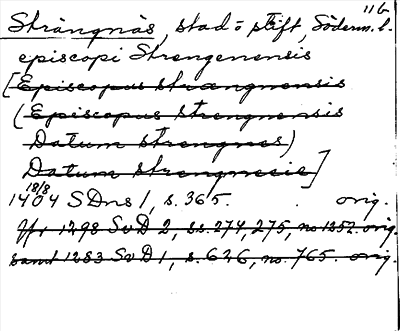 116
Strängnäs, stad o stift, Söderm. l.
episcopi Strengenensis
[Episcopus strangnensis
(Episcopus strengnensis
Datum strengnes)
Datum strengnecie]
18/8
1404 SDns 1, s. 365. orig.
Jfr 1298 SvD 2, ss. 274, 275, no 1252. orig.
samt 1283 SvD 1, s. 626, no. 765. orig.